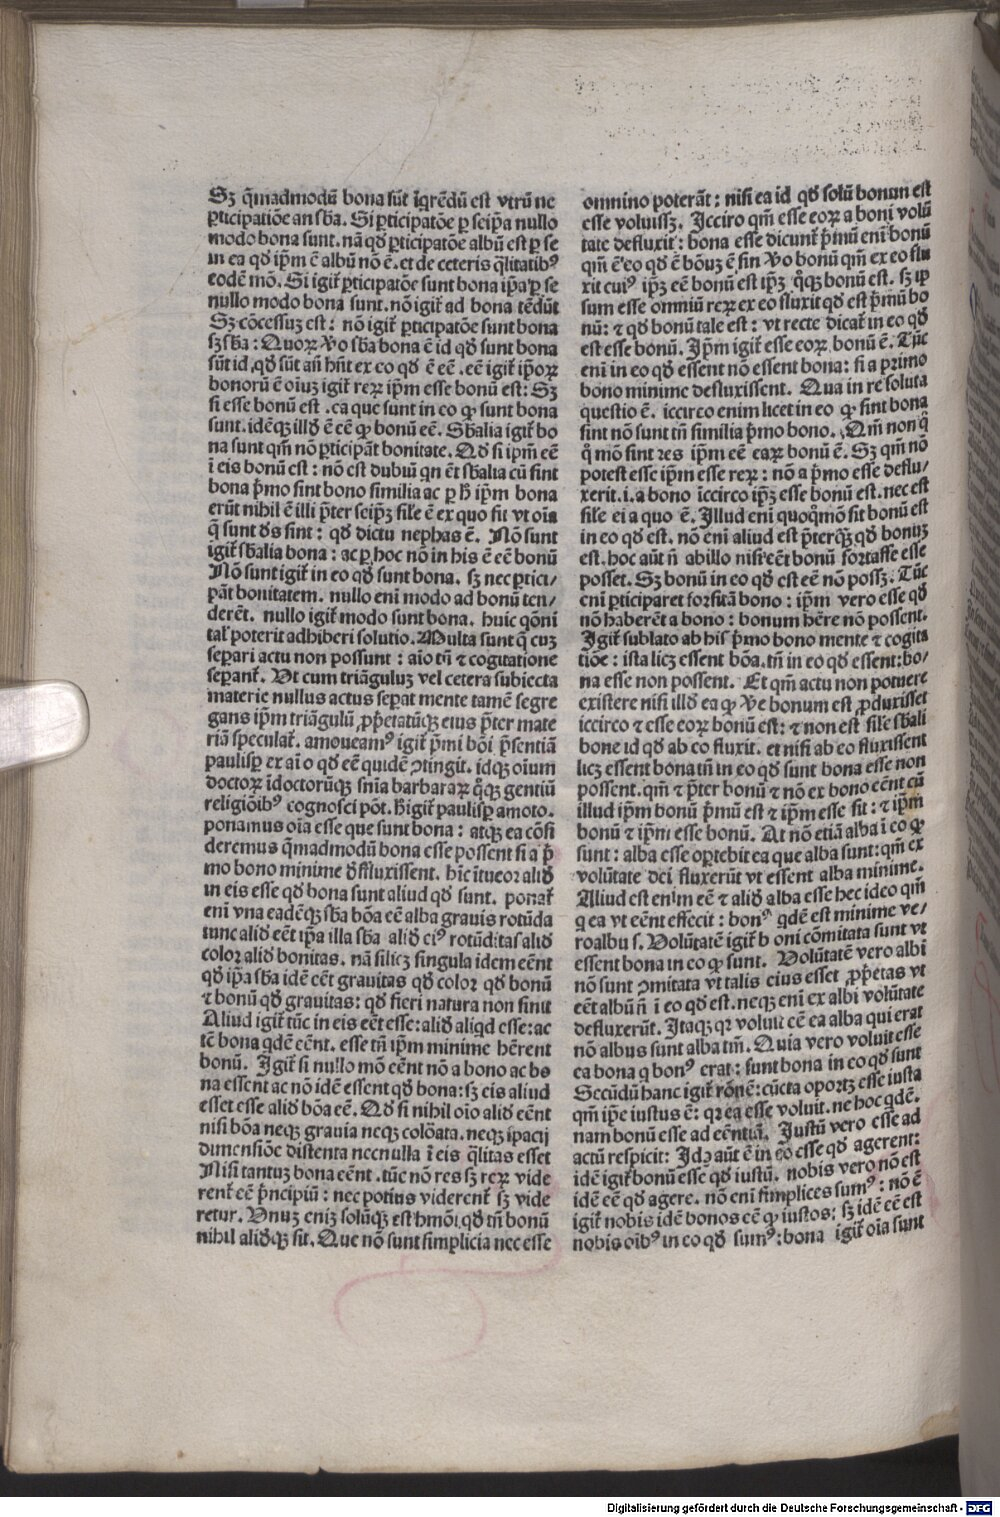 Sꝫ q̄madmodū bona sūt īgrēdū est vtrū ne
ꝑticipatiōe an sb̄a. Si ꝑticipatōe ꝑ seip̄a nullo
modo bona sunt. nā qd̄ ꝑticipatōe albū est ꝑ se
in ea qd̄ ip̄m ē albū nō ē. et de ceteris q̄litatibꝰ
eodē mō. Si igit᷑ ꝑticipatōe sunt bona ip̄a ꝑ se
nullo modo bona sunt. nō igit᷑ ad bona tēdūt
Sꝫ cōcessuꝫ est: nō igit᷑ ꝑticipatōe sunt bona
sꝫ sb̄a: Quoꝝ ꝟo sb̄a bona ē id qd̄ sunt bona
sūt id ,qd̄ sūt aūt hn̄t ex eo qd̄ ē eē .eē igit᷑ ip̄oꝝ
bonorū ē oīuꝫ igit᷑ reꝝ ip̄m esse bonū est: Sꝫ
si esse bonū est .ea que sunt in eo ꝙ sunt bona
sunt. idēqꝫ illd̄ ē eē ꝙ bonū eē. Sb̄alia igit᷑ bo
na sunt qm̄ nō ꝑticipāt bonitate. Qd̄ si ip̄m eē
ī eis bonū est: nō est dubiū qn ēt sb̄alia cū sint
bona p̄mo sint bono similia ac ꝑ h̄ ip̄m bona
erūt nihil ē illi p̄ter seip̄ꝫ sil̄e ē ex quo fit vt oīa
q̄ sunt d̄s sint: qd̄ dictu nephas ē. Nō sunt
igit᷑ sb̄alia bona: ac ꝑ hoc nō in his ē eē bonū
Nō sunt igit᷑ in eo qd̄ sunt bona. sꝫ nec ꝑtici/
pāt bonitatem. nullo eni modo ad bonū ten/
derēt. nullo igit᷑ modo sunt bona. huic qōni
tal᷑ poterit adhiberi solutio. Multa sunt q̄ cuꝫ
seꝑari actu non possunt: aīo tn̄ ⁊ cogitatione
seꝑant᷑. Vt cum triāguluꝫ vel cetera subiecta
materie nullus actus seꝑat mente tamē segre
gans ip̄m triāgulū ,ꝓp̄etatūqꝫ eius p̄ter mate
riā speculat᷑. amoueamꝰ igit᷑ p̄mi bōi p̄sentiā
paulisꝑ ex aīo qd̄ eē quidē ꝯtingit. idqꝫ oīum
doctoꝝ īdoctorūqꝫ sn̄ia barbararꝝ q̄qꝫ gentiū
religiōibꝰ cognosci pōt. h̄ igit᷑ paulisꝑ amoto.
ponamus oīa esse que sunt bona: atqꝫ ea cōsi
deremus q̄madmodū bona esse possent si a p̄
mo bono minime d̄fluxissent. hīc ītueor alid̄
in eis esse qd̄ bona sunt aliud qd̄ sunt. ponat᷑
eni vna eadēqꝫ sb̄a bōa eē alba grauis rotūda
tunc alid̄ eēt ip̄a illa sb̄a alid̄ eiꝰ rotūditas alid̄
color alid̄ bonitas. nā si licꝫ singula idem eēnt
qd̄ ip̄a sb̄a idē eēt grauitas qd̄ color qd̄ bonū
⁊ bonū qd̄ grauitas: qd̄ fieri natura non sinit
Aliud igit᷑ tūc in eis eēt esse: alid̄ aliqd esse: ac
tē bona qdē eēnt. esse tn̄ ip̄m minime hēret
bonū. Igit᷑ si nullo mō eēnt nō a bono ac bo
na essent ac nō idē essent qd̄ bona: sꝫ eis aliud
esset esse alid̄ bōa eē. Qd̄ si nihil oīo alid̄ eēnt
nisi bōa neqꝫ grauia neqꝫ colōata. neqꝫ ip̄acij
dimensiōe distenta nec nulla ī eis q̄litas esset
Nisi tantuꝫ bona eēnt .tūc nō res sꝫ reꝝ vide
rent᷑ eē p̄ncipiū: nec potius viderent᷑ sꝫ vide
retur. Vnuꝫ eniꝫ solūqꝫ est hmōi ,qd̄ tm̄ bonū
nihil alid̄qꝫ sit. Que nō sunt simplicia nec esse
omnino poterāt: nisi ea id qd̄ solū bonun est
esse voluissꝫ. Icciro qm̄ esse eoꝝ a boni volū
tate defluxit: bona esse dicunt᷑ p̄mū eni bonū
qm̄ ē eo qd̄ ē bōuꝫ ē sin ꝟo bonū qm̄ ex eo flu
xit cuiꝰ ip̄ꝫ eē bonū est ip̄ꝫ q̄qꝫ bonū est. sꝫ ip̄
sum esse omniū reꝝ ex eo fluxit qd̄ est p̄mū bo
nū: ⁊ qd̄ bonū tale est: vt recte dicat᷑ in eo qd̄
est esse bonū. Ip̄m igit᷑ esse eoꝝ bonū ē. Tūc
eni in eo qd̄ essent nō essent bona: si a primo
bono minime defluxissent. Qua in re soluta
questio ē. iccirco enim licet in eo ꝙ sint bona
sint nō sunt tn̄ similia p̄mo bono. Qm̄ non q̄
q̄ mō sint res ip̄m eē eaꝝ bonū ē. Sꝫ qm̄ nō
potest esse ip̄m esse reꝝ: nō a p̄mo esse deflu/
xerit. i. a bono īccirco ip̄ꝫ esse bonū est. nec est
sil̄e ei a quo ē. Illud eni quoqꝫmō sit bonū est
in eo qd̄ est. nō eni aliud est p̄terqꝫ qd̄ bonuꝫ
est. hoc aūt n̄ ab illo nisi eēt bonū fortasse esse
posset. Sꝫ bonū in eo qd̄ est eē nō possꝫ. Tūc
eni ꝑticiparet forsitā bono: ip̄m vero esse qd̄
nō haberēt a bono: bonum hēre nō possent.
Igit᷑ sublato ab his p̄mo bono mente ⁊ cogita
tiōe: ista licꝫ essent bōa. tn̄ in eo qd̄ essent: bo/
na esse non possent. Et qm̄ actu non potuere
existere nisi illd̄ ea ꝙ ꝟe bonum est ,ꝓduxisset
iccirco ⁊ esse eoꝝ bonū est: ⁊ non est sil̄e sb̄ali
bone id qd̄ ab eo fluxit. et nisi ab eo fluxissent
licꝫ essent bona tn̄ in eo qd̄ sunt bona esse non
possent. qm̄ ⁊ p̄ter bonū ⁊ nō ex bono eēnt cū
illud ip̄m bonū p̄mū est ⁊ ip̄m esse sit: ⁊ ip̄m
bonū ⁊ ip̄m esse bonū. At nō etiā alba ī eo ꝙ
sunt: alba esse oꝑtebit ea que alba sunt: qm̄ ex
volūtate dei fluxerūt vt essent alba minime.
Aliud est enim eē ⁊ alid̄ alba esse hec ideo qm̄
q ea vt eēnt effecit: bonꝰ qdē est minime ve/
ro albus. Volūtatē igit᷑ boni cōmitata sunt vt
essent bona in eo ꝙ sunt. Volūtatē vero albi
nō sunt ꝯmitata vt talis eius esset ,ꝓp̄etas vt
eēt albū n̄ ī eo qd̄ est. neqꝫ eni ex albi volūtate
defluxerūt. Itaqꝫ qr voluit eē ea alba qui erat
nō albus sunt alba tm̄. Quia vero voluit esse
ea bona q bonꝰ erat: sunt bona in eo qd̄ sunt
Secūdū hanc igit᷑ rōnē: cūcta oportꝫ esse iusta
qm̄ ip̄e iustus ē: qr ea esse voluit. ne hoc qdē.
nam bonū esse ad eēntiā. Iustū vero esse ad
actū respicit: Idꝫ aūt ē in eo esse qd̄ agerent:
idē igit᷑ bonū esse qd̄ iustū. nobis vero nō est
idē eē qd̄ agere. nō eni simplices sumꝰ: nō ē
igit᷑ nobis idē bonos eē ꝙ iustos: sꝫ idē eē est
nobis oībꝰ in eo qd̄ sumꝰ: bona igit᷑ oīa sunt
Digitalisierung gefördert durch die Deutsche Forschungsgemeinschaft - DFG